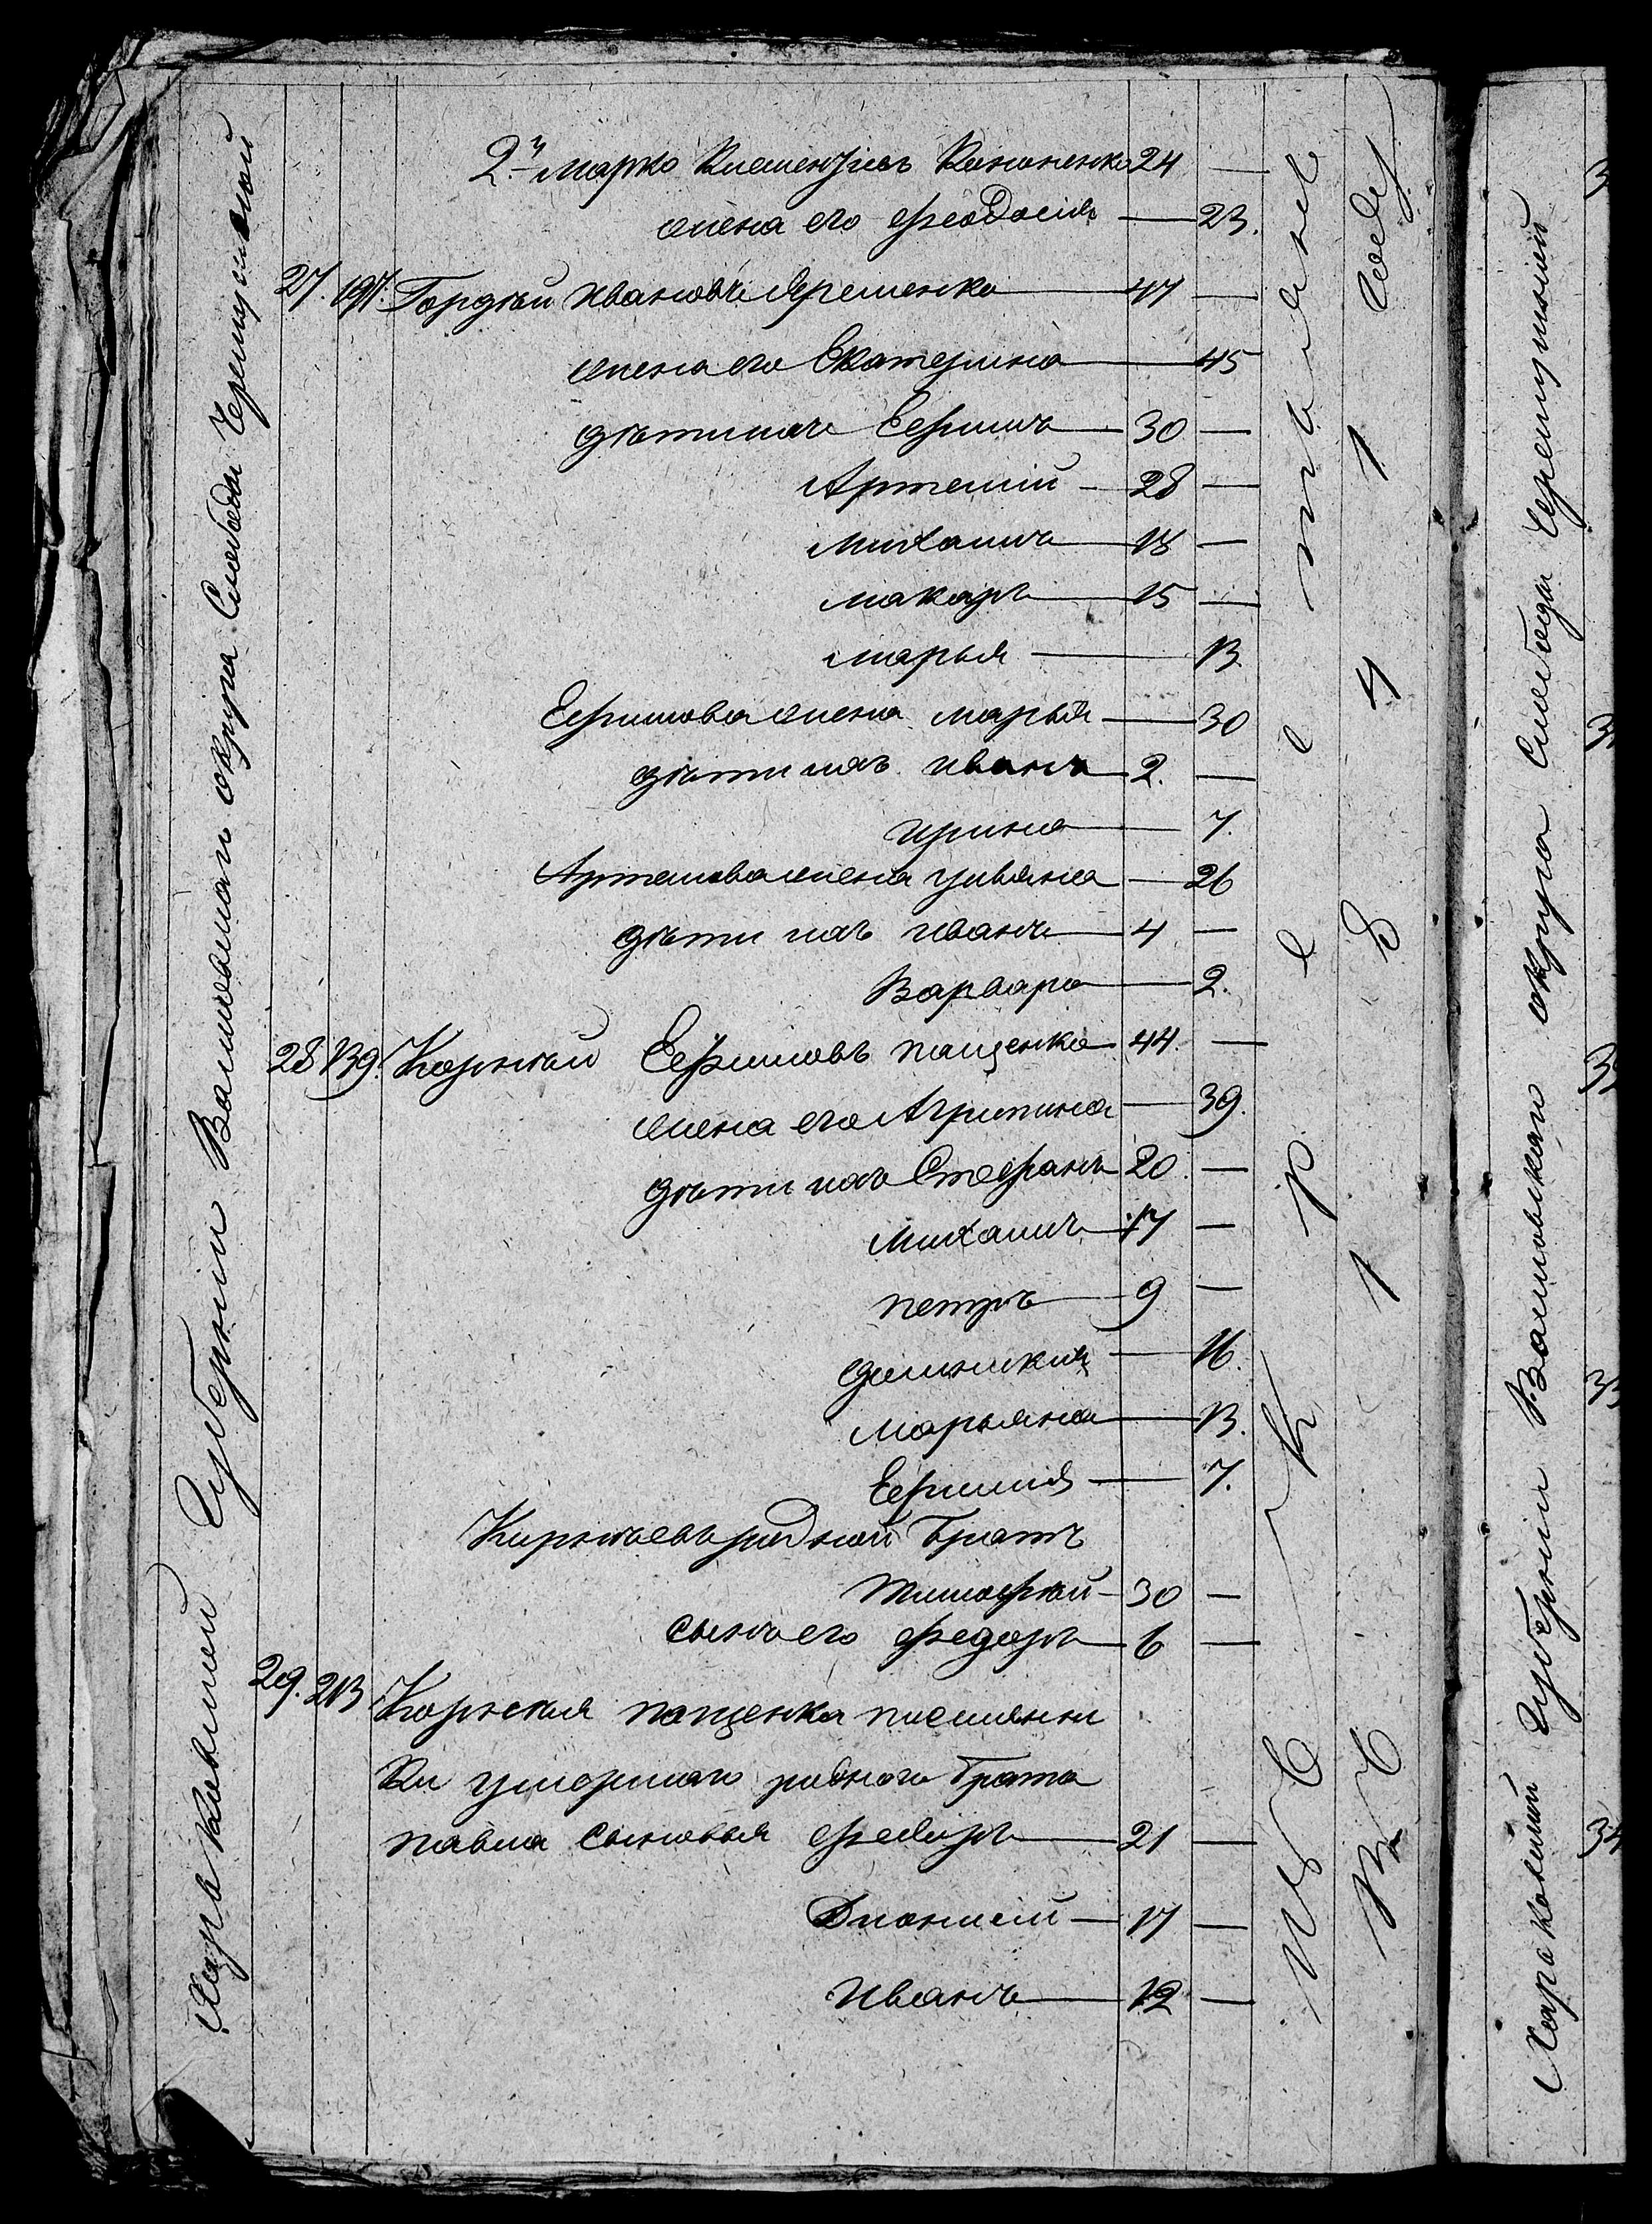 Харьковской Губерніи Валковскаго округа Слободы Черемушной
2й Марко Клементіевъ Кононенко 24 —
жена его Феодосия — 23.
27. 197. Гордѣй Ивановъ Яременко — 47 —
жена его Екатерина — 45
дѣти ихъ Ефимъ — 30 —
Артемій — 28 —
Михаилъ — 18 —
Макаръ — 15 —
Марья — 13.
Ефимова жена Марья — 30
дѣти ихъ Иванъ — 2. —
Ирина — 7.
Артемова жена Ульяна — 26
дѣти ихъ Иванъ — 4 —
Варвара — 2.
28 139. Корнѣй Ефимовъ Пащенко 44. —
жена его Агрипина — 39.
дѣти ихъ Стефанъ 20. —
Михаилъ 17 —
Петръ — 9 —
— 16.
Марьяна — 13.
Ефимия — 7.
Корнѣевъ родной братъ
Тимофѣй — 30 —
сынъ его Федоръ — 6 —
29. 213 Корнѣя Пащенка племянни
ки умершаго роднаго брата
Павла сыновья Федоръ — 21 —
Дионисій — 17 —
Иванъ — 12 —
Изъ крестьянъ
Въ 1841 году
Харьковской Губерніи Валковскаго округа Слободы Черемушной
34